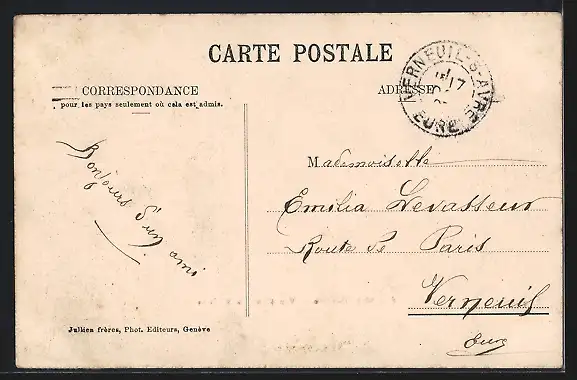 CARTE POSTALE
CORRESPONDANCE
pour les pays seulement où cela est admis.
ADRESSE
VERNEUIL-S-AVRE
17
EURE
Bonjours d'un ami
Mademoiselle
Emilia Levasseur
Route De Paris
Verneuil
Eure
Jullien frères, Phot. Editeurs, Genève